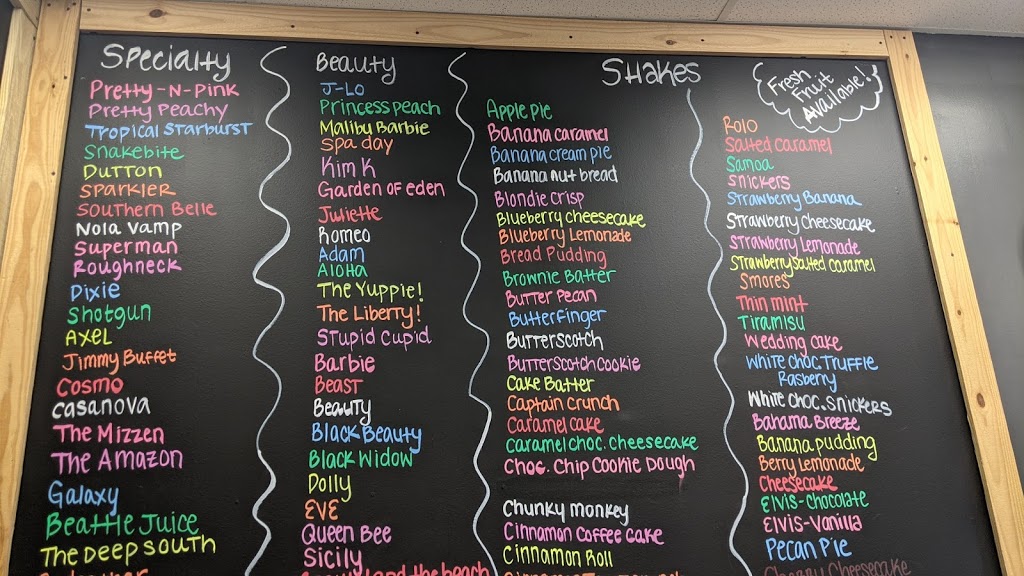 Specialty
Pretty-N-Pink
Pretty Peachy
Tropical Starburst
Snakebite
Dutton
Sparkler
Southern Belle
Nola Vamp
Superman
Roughneck
Dixie
Shotgun
Axel
Jimmy Buffet
Cosmo
Casanova
The Mizzen
The Amazon
Galaxy
Beattle Juice
The Deep South
Beauty
J-Lo
Princess Peach
Malibu Barbie
Spa day
Kim K
Garden of eden
Juliette
Romeo
Adam
Aloha
The Yuppie!
The Liberty!
Stupid Cupid
Barbie
Beast
Beauty
Black Beauty
Black Widow
Dolly
Eve
Queen Bee
Sicily
Shakes
Apple Pie
Banana caramel
Banana cream pie
Banana nut bread
Blondie Crisp
Blueberry cheesecake
Blueberry Lemonade
Bread Pudding
Brownie Batter
Butter Pecan
Butterfinger
Butterscotch
Butterscotch Cookie
Cake Batter
Captain Crunch
Caramel cake
Caramel choc. cheesecake
Choc. Chip Cookie Dough
Chunky monkey
Cinnamon Coffee Cake
Cinnamon Roll
Fresh
Fruit
Available!
Rolo
Salted Caramel
Samoa
Snickers
Strawberry Banana
Strawberry Cheesecake
Strawberry Lemonade
Strawberry Salted Caramel
Smores
Thin mint
Tiramisu
Wedding cake
White Choc. Truffle
Rasberry
White Choc. Snickers
Bahama Breeze
Banana pudding
Berry Lemonade
Cheesecake
Elvis-Chocolate
Elvis-Vanilla
Pecan Pie
Cherry Cheesecake